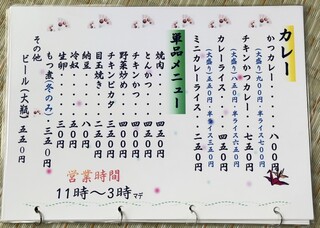 カレー
かつカレー・・・・八〇〇円
(大盛り)九〇〇円・半ライス七〇〇円
チキンかつカレー・・七五〇円
(大盛り)八五〇円・半ライス六五〇円
カレーライス・・・四五〇円
(大盛り)五五〇円・半ライス三五〇円
ミニカレーライス・・二五〇円
単品メニュー
焼肉・・・・四五〇円
とんかつ・・・四五〇円
チキンかつ・・四〇〇円
野菜炒め・・・四〇〇円
チキンピカタ・三五〇円
目玉焼き・・二〇〇円
納豆・・・・八〇円
冷奴・・・・五〇円
生卵・・・・三〇円
もつ煮(冬のみ)三五〇円
その他
ビール(大瓶)五五〇円
営業時間
11時〜3時マデ